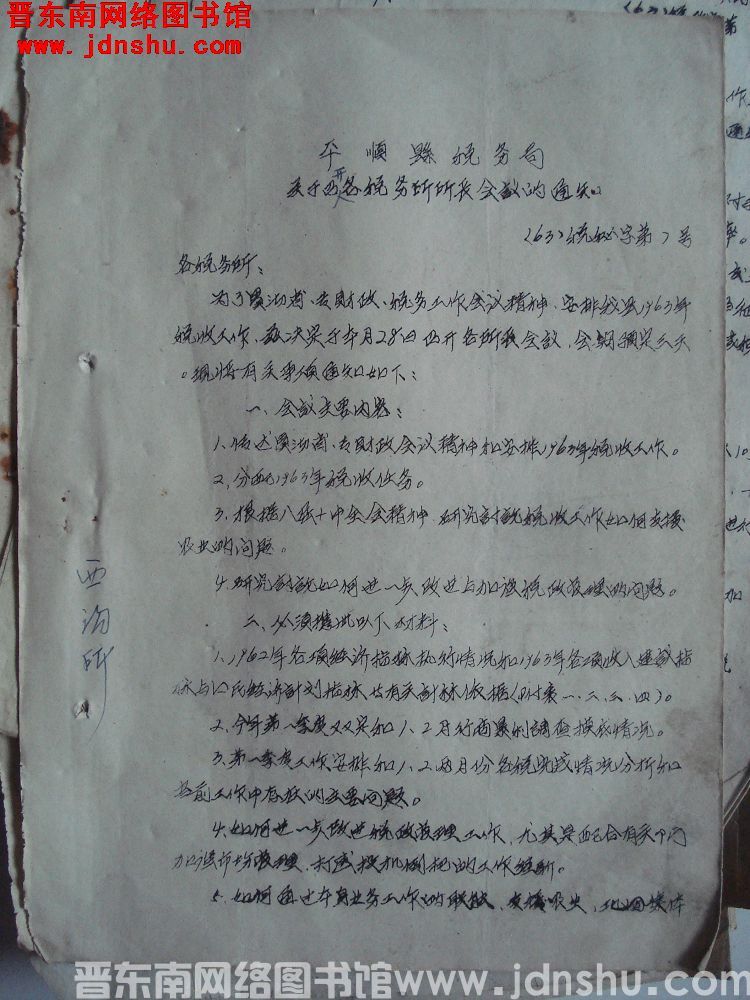 晋东南网络图书馆
www.jdnshu.com
平顺县税务局
关于召开各税务所所长会议的通知
(63)税秘字第7号
各税务所:
为了贯彻省、专财政、税务工作会议精神,安排我县1963年
税收工作,兹决定于本月28日召开各所长会议,会期预定三天
。现将有关事项通知如下:
一、会议主要内容:
1、传达贯彻省、专财政会议精神和安排1963年税收工作。
2、分配1963年税收任务。
3、根据八届十中全会精神,研究讨论税收工作如何支援
农业的问题。
4、研究讨论如何进一步改进与加强税政管理的问题。
二、必须携带以下材料:
1、1962年各项经济指标执行情况和1963年各项收入建议指
标与国民经济计划指标及有关计标依据(附表一、二、三、四)。
2、今年第一季度双定和1、2月行商累利调查换底情况。
3、第一季度工作安排和1、2两月份各税完成情况分析和
当前工作中存在的主要问题。
4、如何进一步改进税政管理工作,尤其是配合有关部门
加强市场管理,打击投机倒把的工作经验。
5、如何通过本身业务工作的职能,支援农业,巩固集体
西沟所
晋东南网络图书馆 www.jdnshu.com